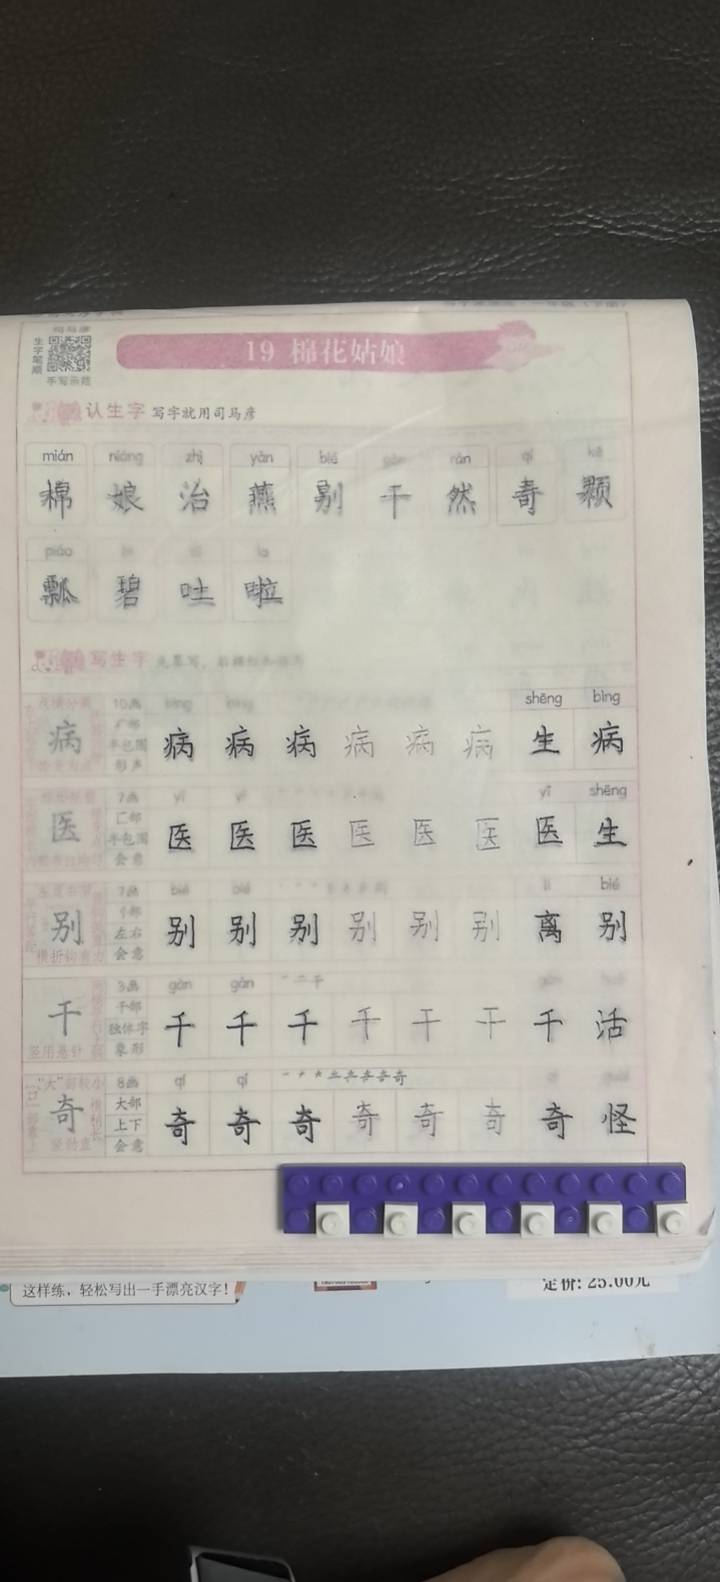 司马彦
生字笔顺
手写示范
19 棉花姑娘
认生字 写字就用司马彦
mián niáng zhì yàn bié gàn rán qí kē
棉 娘 治 燕 别 干 然 奇 颗
piáo la
瓢 碧 吐 啦
写生字
10画 shēng bìng
病 半包围 形声 病 病 病 病 病 病 生 病
7画 yī yī yī shēng
医 匚部 半包围 会意 医 医 医 医 医 医 医 生
7画 bié bié lí bié
别 左右 会意 别 别 别 别 别 别 离 别
3画 gàn gàn 一 二 干
干 干部 独体字 象形 干 干 干 干 干 干 干 活
8画 qí qí
奇 大部 上下 会意 奇 奇 奇 奇 奇 奇 奇 怪
这样练，轻松写出一手漂亮汉字！
定价: 25.00元